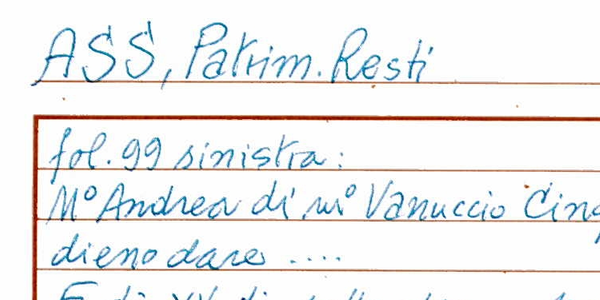 ASS, Patrim. Resti
fol. 99 sinistra:
Mº Andrea di mº Vanuccio
dieno dare ....